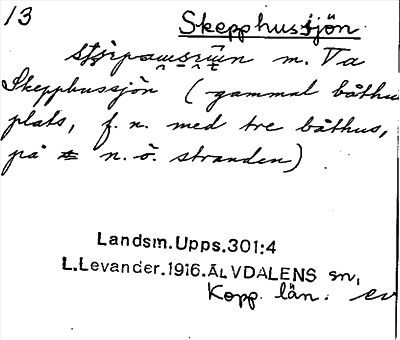 13
Skepphussjön.
m. Va
Skepphussjön (gammal båthus
plats, f. n. med tre båthus,
på n. ö. stranden)
Landsm. Upps. 301:4
L. Levander. 1916. ÄLVDALENS sn,
Kopp. län. ev